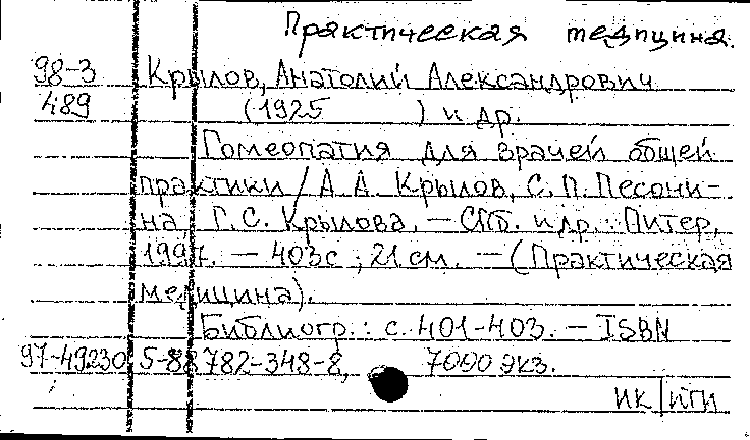 Практическая медицина.
98-3 Крылов, Анатолий Александрович
489 (1925 ) и др.
Гомеопатия для врачей общей
практики / А. А. Крылов, С. П. Песони-
на, Г. С. Крылова. — СПб. и др. : Питер,
1997. — 403с ; 21 см. — (Практическая
медицина).
Библиогр.: с. 401-403. — ISBN
97-49230 5-88782-348-8, 7000 экз.
НК | ИТИ